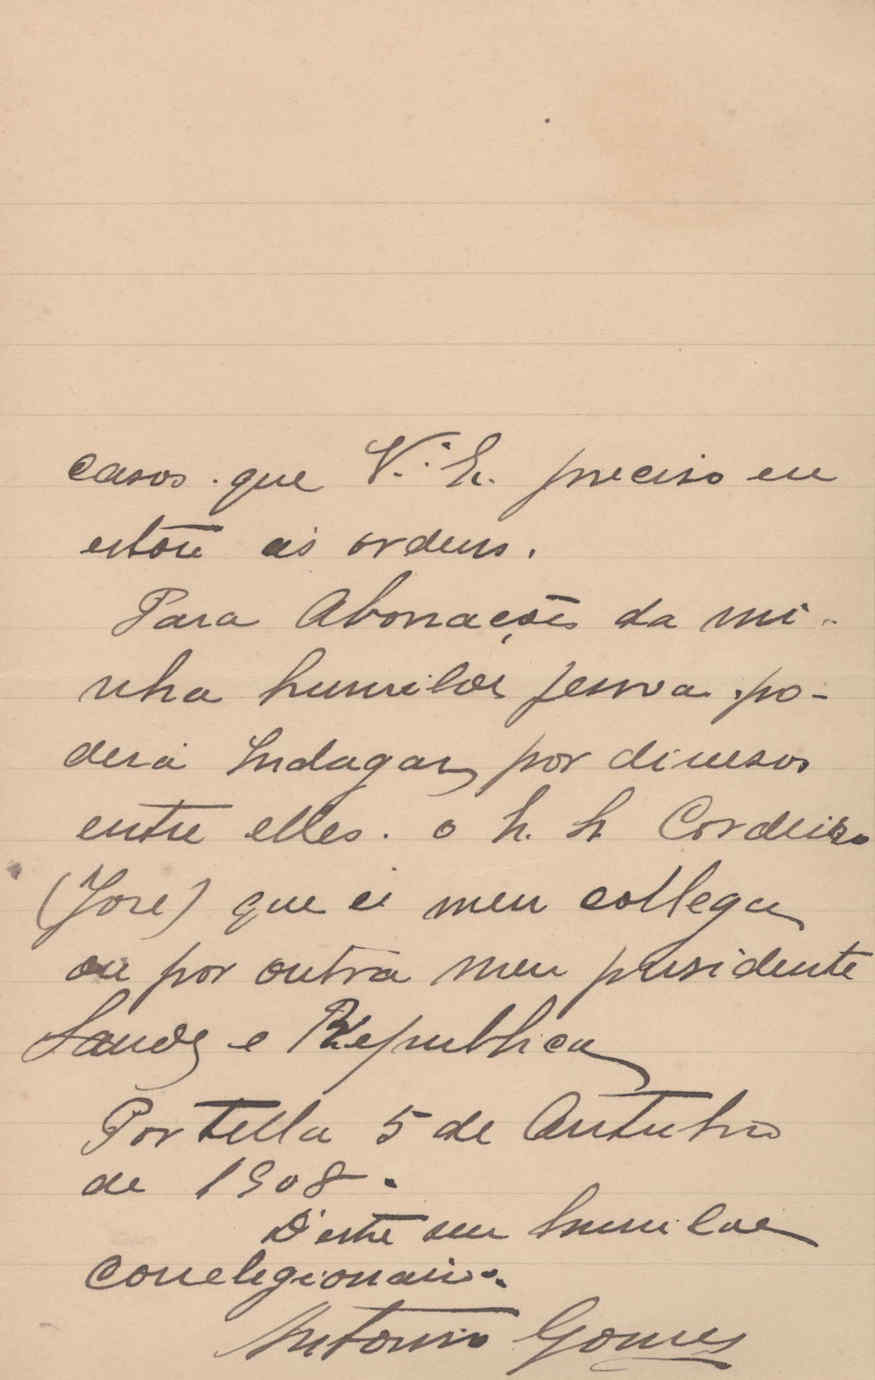 casos. que V.·. Ex. preciso eu
estou ás ordens.
Para Abonações da mi-
nha humilde pessoa po-
derá Indagar, por diversos
entre elles. o
Cordeiro
(Jose) que é meu collega
ou por outra meu presidente
Saude e Republica
Portella 5 de Outubro
de 1908.
D'este seu humilde
correlegionario.
Antonio Gomes